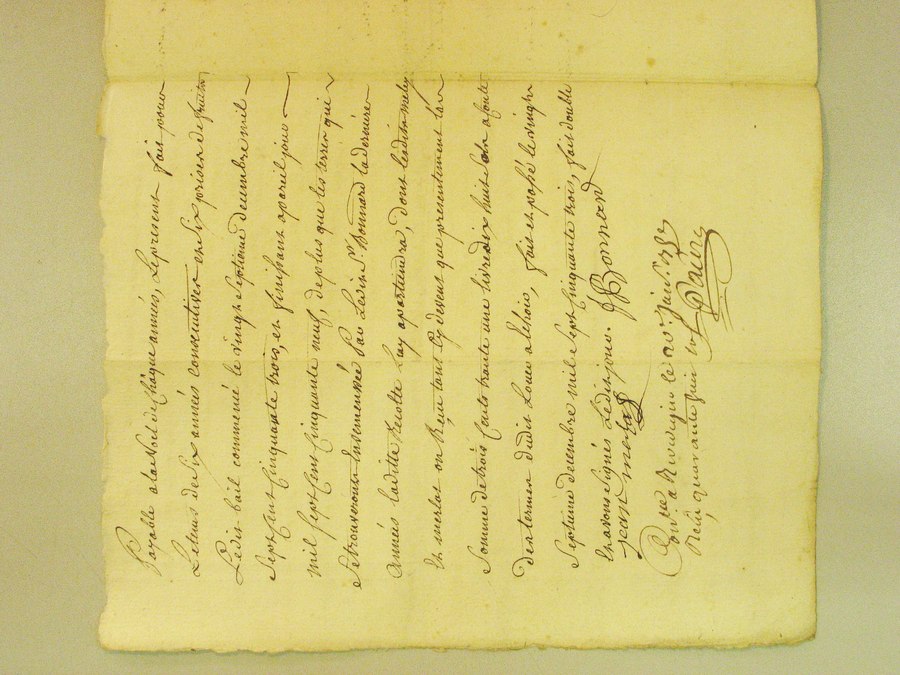 Payable a la Noel de Châque années, Le present fait pour
Le tems de Six années Consecutives en Six prises de fruits
Ledit bail commencé le vingt Septieme decembre mil
Sept Cent Cinquante trois, et finissant apareil jour
mil Sept Cent Cinquante neuf, de plus que les terres qui
Se trouveront Ensemencées Par Ledit Sr. Bonnard la derniere
Années laditte Recolte Luy apartiendra, dont ledit
Et merlat on Reçu tant Cy devent que presentement la
Somme de trois Cents trante une livre dix huit
des termes dudit Loüer a Echoir, fait et passé le vingt
Septième decembre mil Sept Cinquante trois, fait double
Et avons Signés Ledit jour. Bonnard
Jean merlat
a le
Reçu quarante